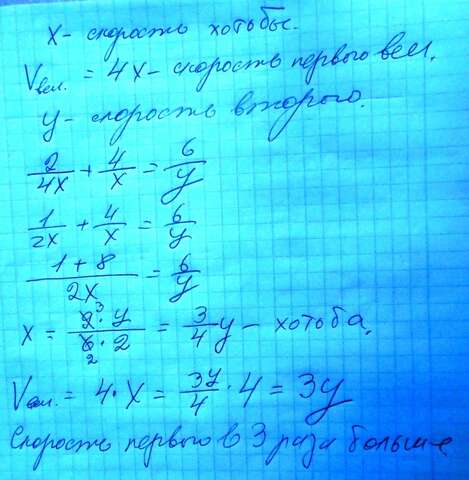 x - скорость хотьбы.
Vвел. = 4x - скорость первого вел.
y - скорость второго.
2/4x + 4/x = 6/y
1/2x + 4/x = 6/y
1 + 8/2x = 6/y
x = 9³ · y/6₂ · 2 = 3/4 y - хотьба.
Vвел. = 4 · x = 3y/4 · 4 = 3y
Скорость первого в 3 раза больше